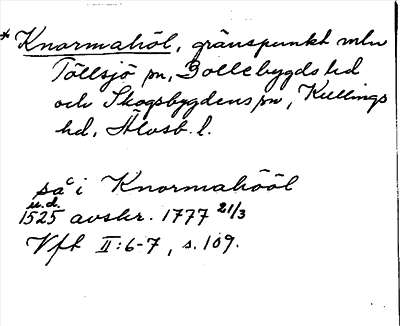 * Knormahöl, gränspunkt mln
Töllsjö sn, Bollebygds hd
och Skogsbygdens sn, Kullings
hd, Älvsb. l.
så i Knormahööl
u.d.
1525 avskr. 1777 21/3
Vft II:6-7, s. 109.